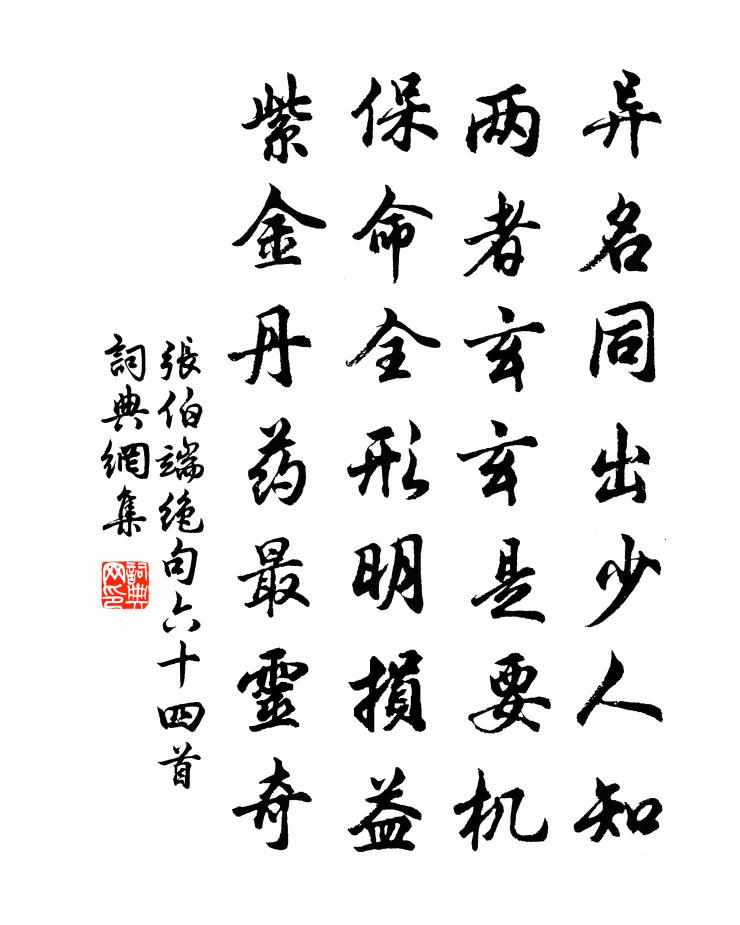 异名同出少人知
两者玄玄是要机
保命全形明损益
紫金丹药最灵奇
張伯端绝句六十四首
詞典網集
詞典网印